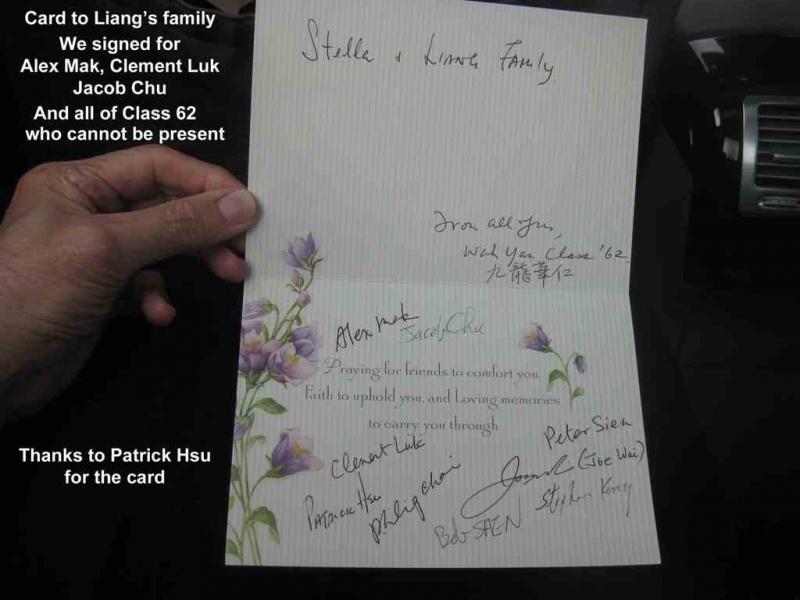 Card to Liang's family
We signed for
Alex Mak, Clement Luk
Jacob Chu
And all of Class 62
who cannot be present
Stella & Liang Family
From all of us,
Wah Yan Class '62
九龍華仁
Alex Mak
Jacob Chu
Praying for friends to comfort you,
Faith to uphold you, and Loving memories
to carry you through
Clement Luk
Peter Sien
(Joe Wai)
Patrick Hsu
Philip Choi
Stephen Kong
Bob SAEN
Thanks to Patrick Hsu
for the card